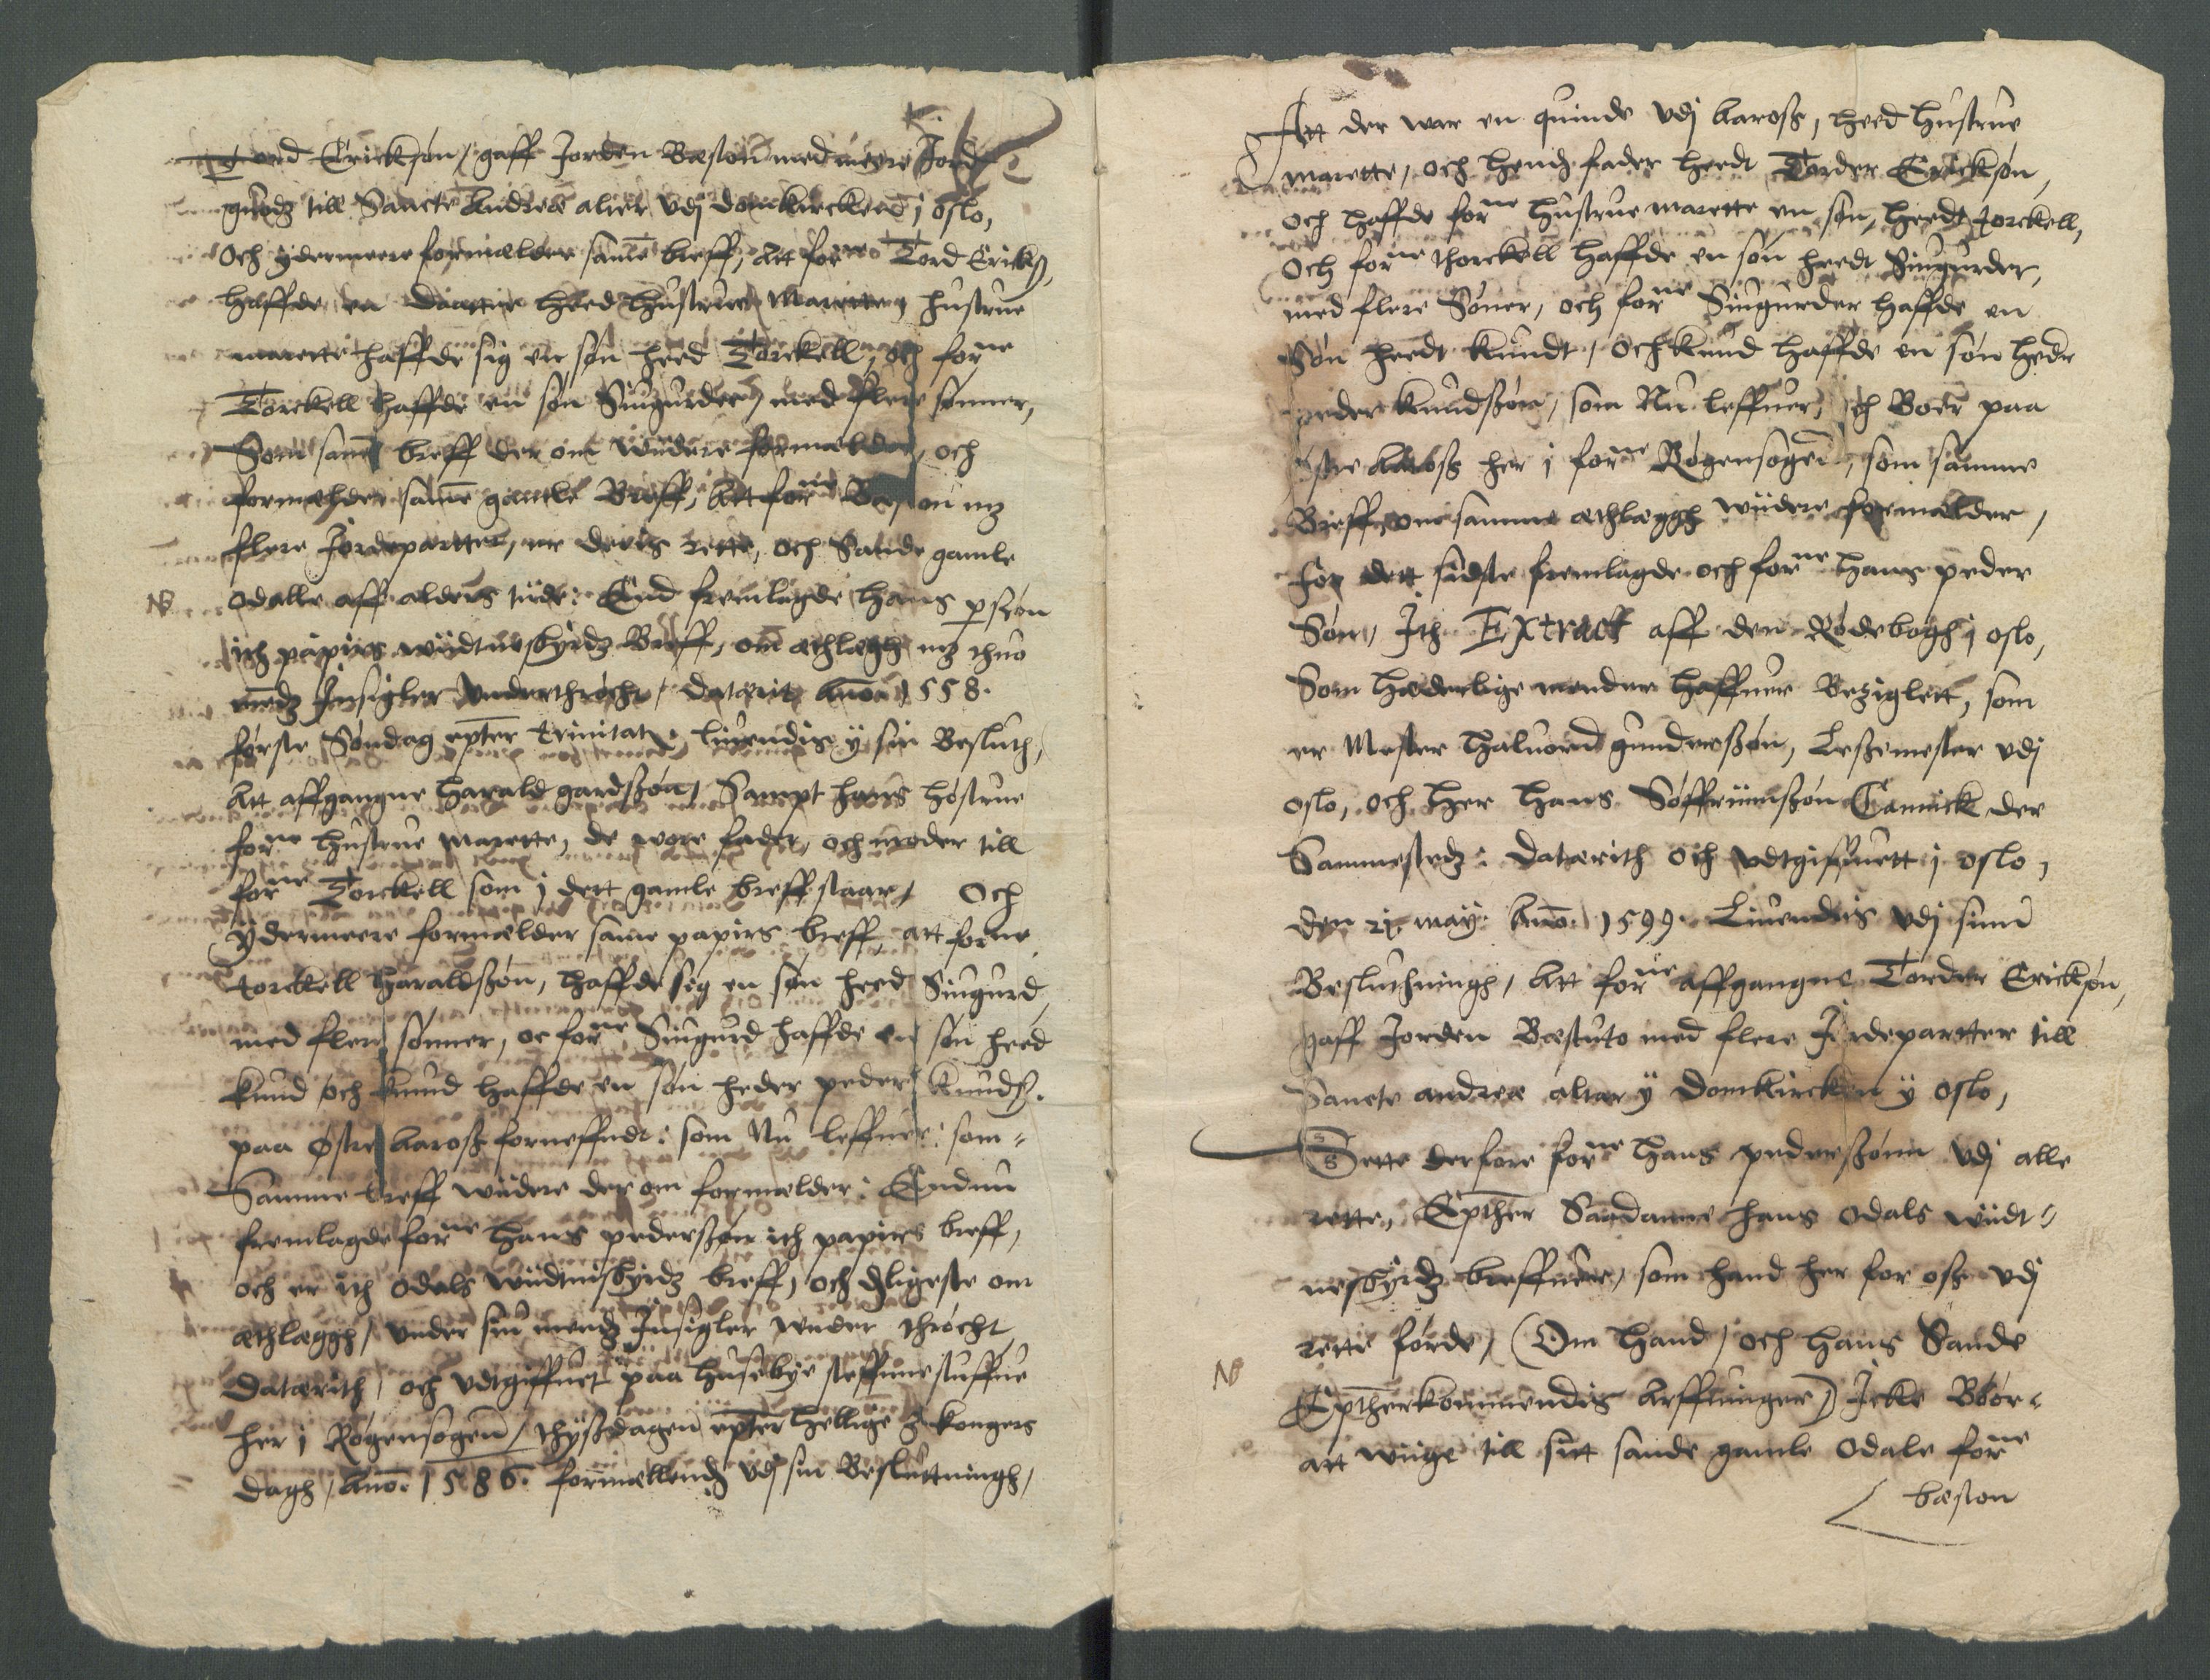 Tord Ericksøn, gaff Jorden Bæston med meere Jord
guodz till Sancte Andreæ alter vdj domkircken i oslo,
Och ÿdermeere formælder same breff, Att forne Tord Ericks,
haffde en daatter heed Hustrue Marette, hustrue
marette haffde sig en søn heed Torckell, och forne
Torckell haffde en søn Siugurder, med flere sønner,
Som same breff der om wiidere formælder, och
formælder same gamle Breff, Att forne Bæston mz
flere Jordepartter, er deris rette, och Sande gamle
odalle aff alders tiide: End fremlagde hans pszøn
NB
ith papirs wiidtnesbyrdz Breff, om æthlægh mz thuo
mendz Insigler vnderthrøcht, datærit Ano 1558.
første Søndag epter trinitatz, liuendis ÿ sin Besluth,
Att affgangne Harald gardszøn, Sampt hans høstrue
forne hustrue marette, de wore fader, och moder till
forne Torckell som i dett gamle breff staar, Och
ÿdermeere formælder same papirs breff, att forne
torckell haraldszøn, haffde sig en søn heed Siugurd,
med flere sønner, oc forne Siugurd haffde en søn heed
knud, och knud haffde en søn heder peder Knuds.
paa østre Aaross forneffndt: som Nu leffuer: som
Samme breff wiidere der om formælder: Endnu
fremlagde forne Hans pederszøn ith papirs breff,
och er ith odals wiidtnisbyrdz breff, och dligeste om
æthlæggh, vnder siu mendz Insigler vnder thrøcht
Datærith, och vdtgiffuet paa husebye steffnestuffue
her i Røgensogen, thyszdagen epter hellige 3 kongers
dagh, Ano. 1586. formællendz vdj sin Besluttningh,
Att der war en quinde vdj Aaross, heed hustrue
marette, och hendz fader heedt Torder Ericksøn,
och haffde forne hustrue marette en søn, heedt torckell,
Och forne thorckell haffde en søn heedt Siugurder,
med flere Søner, och forne Siugurder haffde en
Søn heedt knudt, och knud haffde en søn heder
peder knudszøn, som Nu leffuer, och Boer paa
østre Aaross her i forne Røgensogen, som samme
Breff om samme æthlæggh wiidere formælder,
for dett sidste fremlagde och forne hans peder
Søn, Ith Extract aff den Rødebogh i oslo,
Som hæderlige mender haffuer Beziglett, som
er Mester Haluord gunderszøn, Leszemester vdj
oslo, och Her Hans Søffriinszøn Cannick der
Sammestedz: datærith och vdtgiffuett i oslo,
den 21 maÿ. Ano. 1599. Liuendis vdj sinn
Besluthningh, Att forne affgangne Torder Ericksøn,
gaff Jorden Bæstuto med flere Jordepartter till
Sancte andreæ altar ÿ Domkircken ÿ oslo,
Sette derfore forne Hans pederszønn vdj alle
rette, Epther Saadanne hans odals wiidt-
nesbyrdz breffuer, som hand her for oss vdj
rette førde, (Om Hand, och Hans Sande
NB
Eptherkommendis Arffuinger) Icke Bøør
att wiige till sitt sande gamle odale forne
bæston